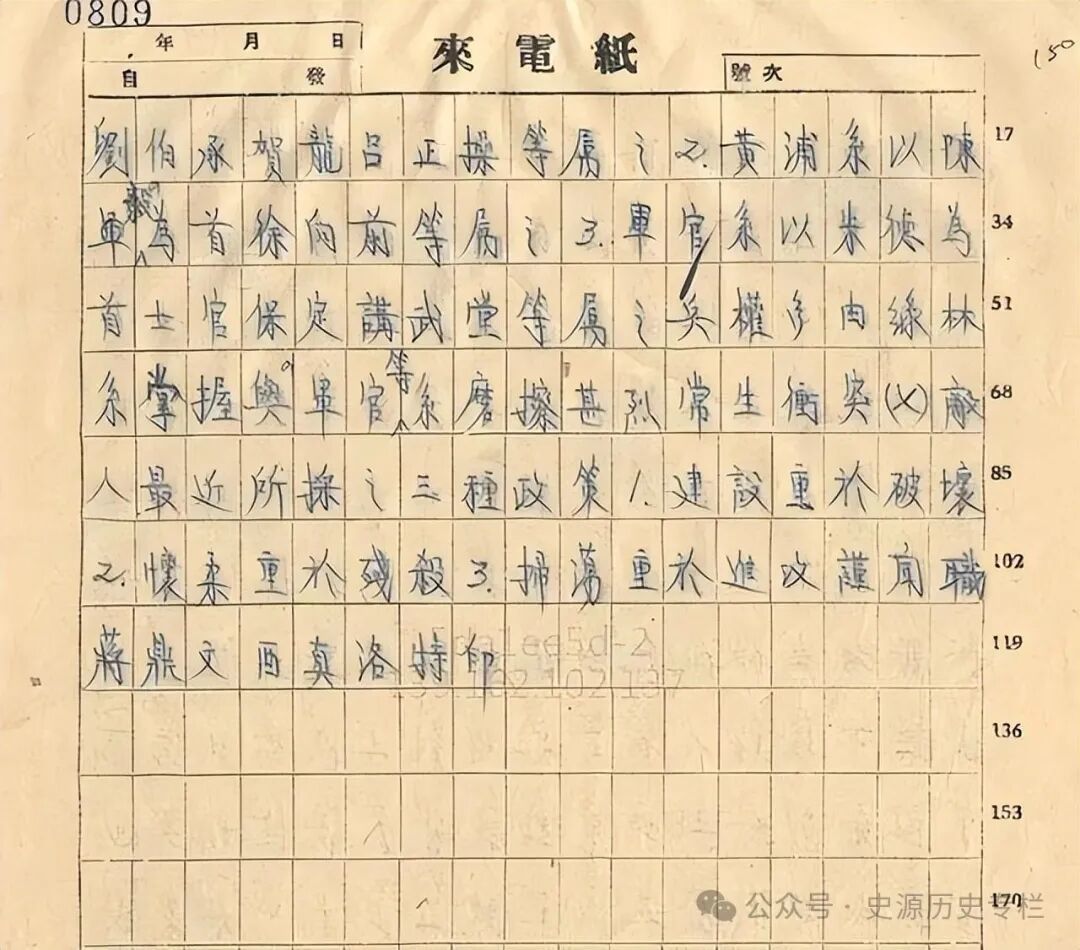 0809
年 月 日
自 發
來電紙
號次
150
劉伯承賀龍呂正操等屬之2.黃浦系以陳 17
軍毅為首徐向前等屬之3.軍官系以朱德為 34
首士官保定講武堂等屬之兵權多由綠林 51
系掌握與軍官等系磨擦甚烈常生衝突(乂)敵 68
人最近所採之三種政策1.建設重於破壞 85
2.懷柔重於殘殺3.掃蕩重於進攻謹聞職 102
蔣鼎文酉真洛特印 119
136
153
170
133.162.102.137
公众号·史源历史专栏